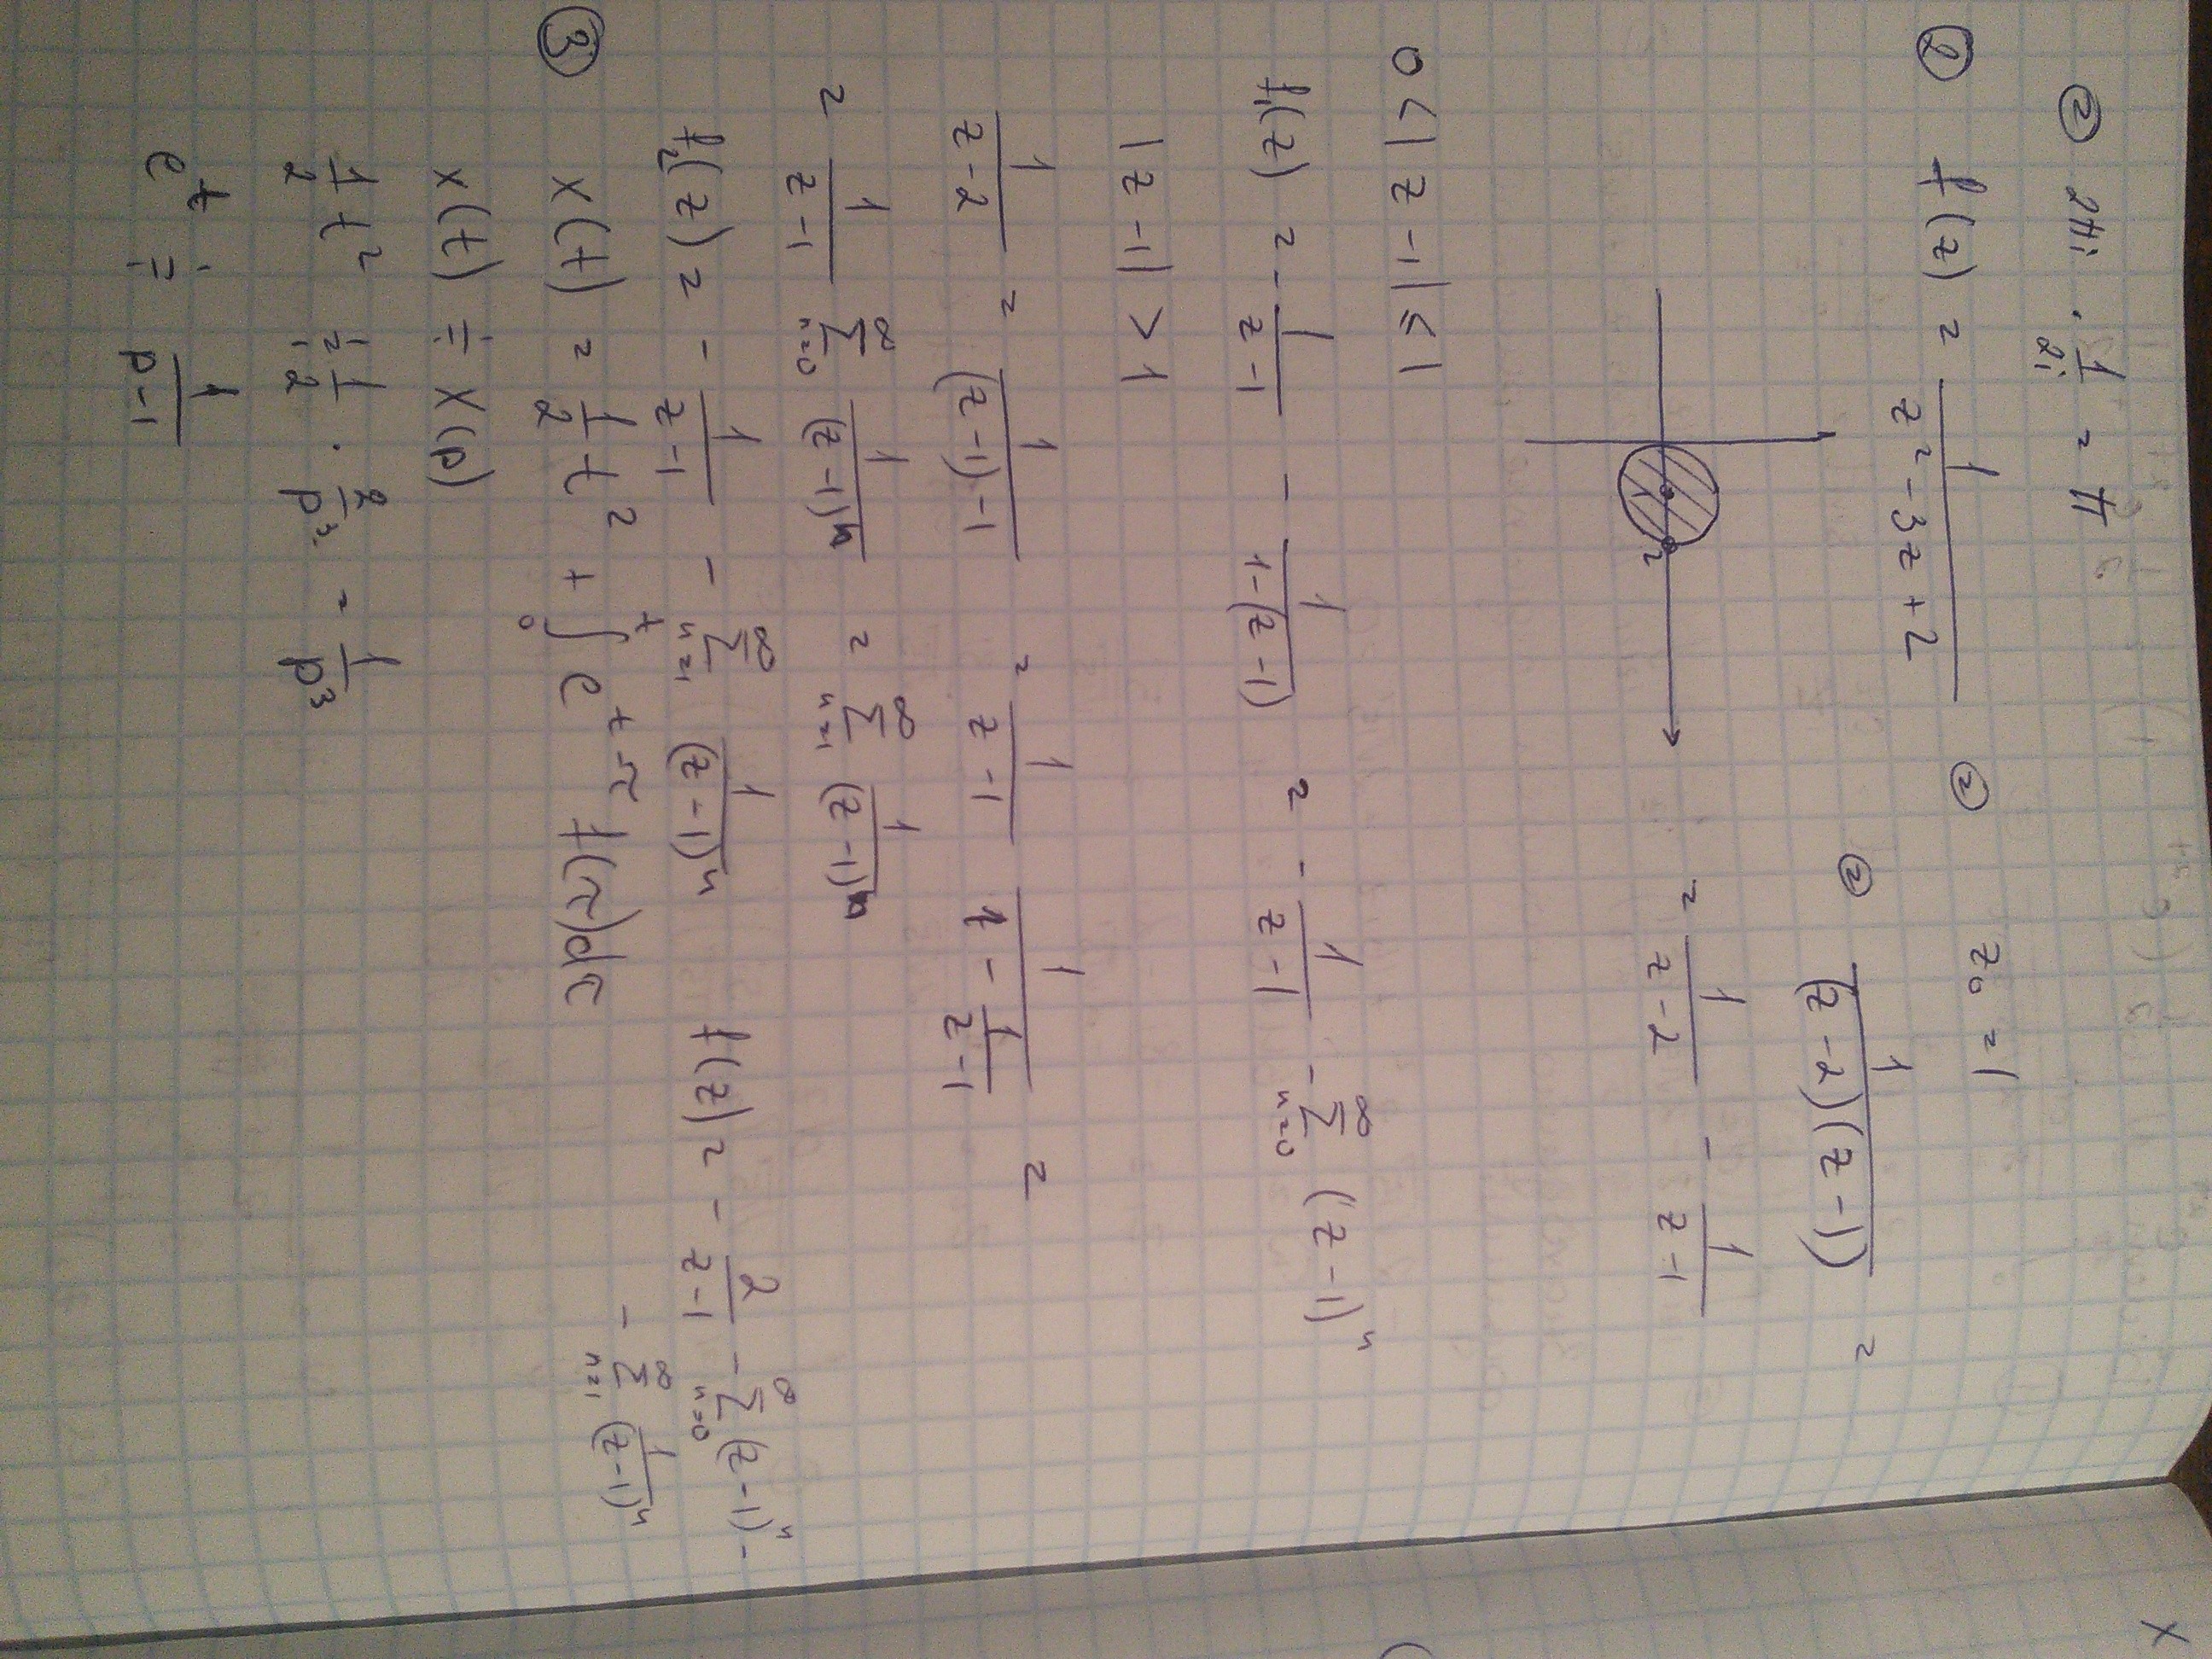 ⊜ 2πi · 1/2i = π
② f(z) = 1/(z² - 3z + 2) ⊜ z₀ = 1
⊜ 1/((z - 2)(z - 1)) =
= 1/(z - 2) - 1/(z - 1)
1 2
0 < | z - 1 | ≤ 1
f₁(z) = - 1/(z - 1) - 1/(1 - (z - 1)) = - 1/(z - 1) - ∑_{n=0}^{∞} (z - 1)ⁿ
| z - 1 | > 1
1/(z - 2) = 1/((z - 1) - 1) = 1/(z - 1) 1/(1 - 1/(z - 1)) =
= 1/(z - 1) ∑_{n=0}^{∞} 1/(z - 1)ⁿ = ∑_{n=1}^{∞} 1/(z - 1)ⁿ
f₂(z) = - 1/(z - 1) - ∑_{n=1}^{∞} 1/(z - 1)ⁿ f(z) = - 2/(z - 1) - ∑_{n=0}^{∞} (z - 1)ⁿ -
- ∑_{n=1}^{∞} 1/(z - 1)ⁿ
③ x(t) = 1/2 t² + ∫₀ᵗ e^{t - τ} f(τ)dτ
x(t) ≑ X(p)
1/2 t² ≑ 1/2 · 2/p³ = 1/p³
eᵗ ≑ 1/(p - 1)
x
(